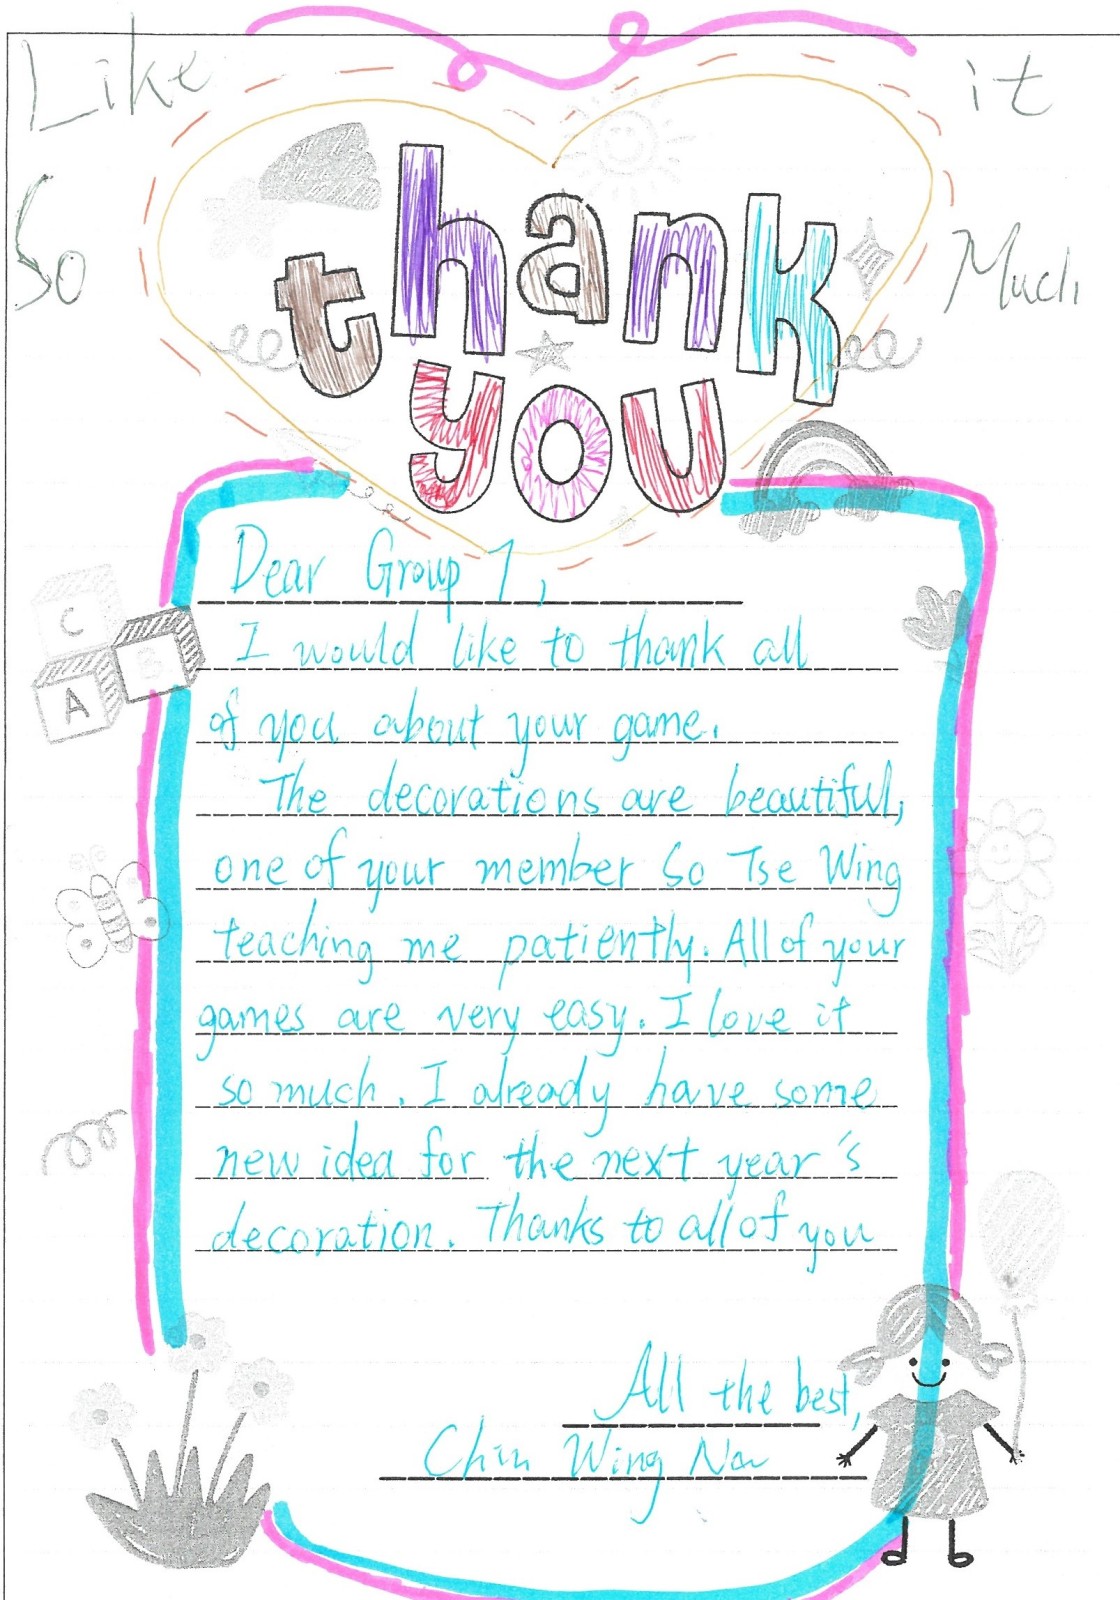 Like it
So Much
thank
you
Dear Group 1,
I would like to thank all
of you about your game.
The decorations are beautiful,
one of your member So Tse Wing
teaching me patiently. All of your
games are very easy. I love it
so much. I already have some
new idea for the next year's
decoration. Thanks to all of you
C
A B
All the best,
Wing